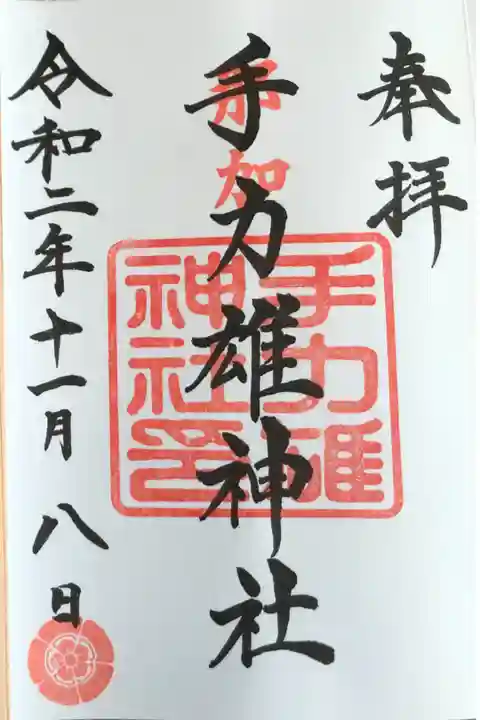 奉拝
那加
手力雄神社
手力雄神社印
令和二年十一月八日